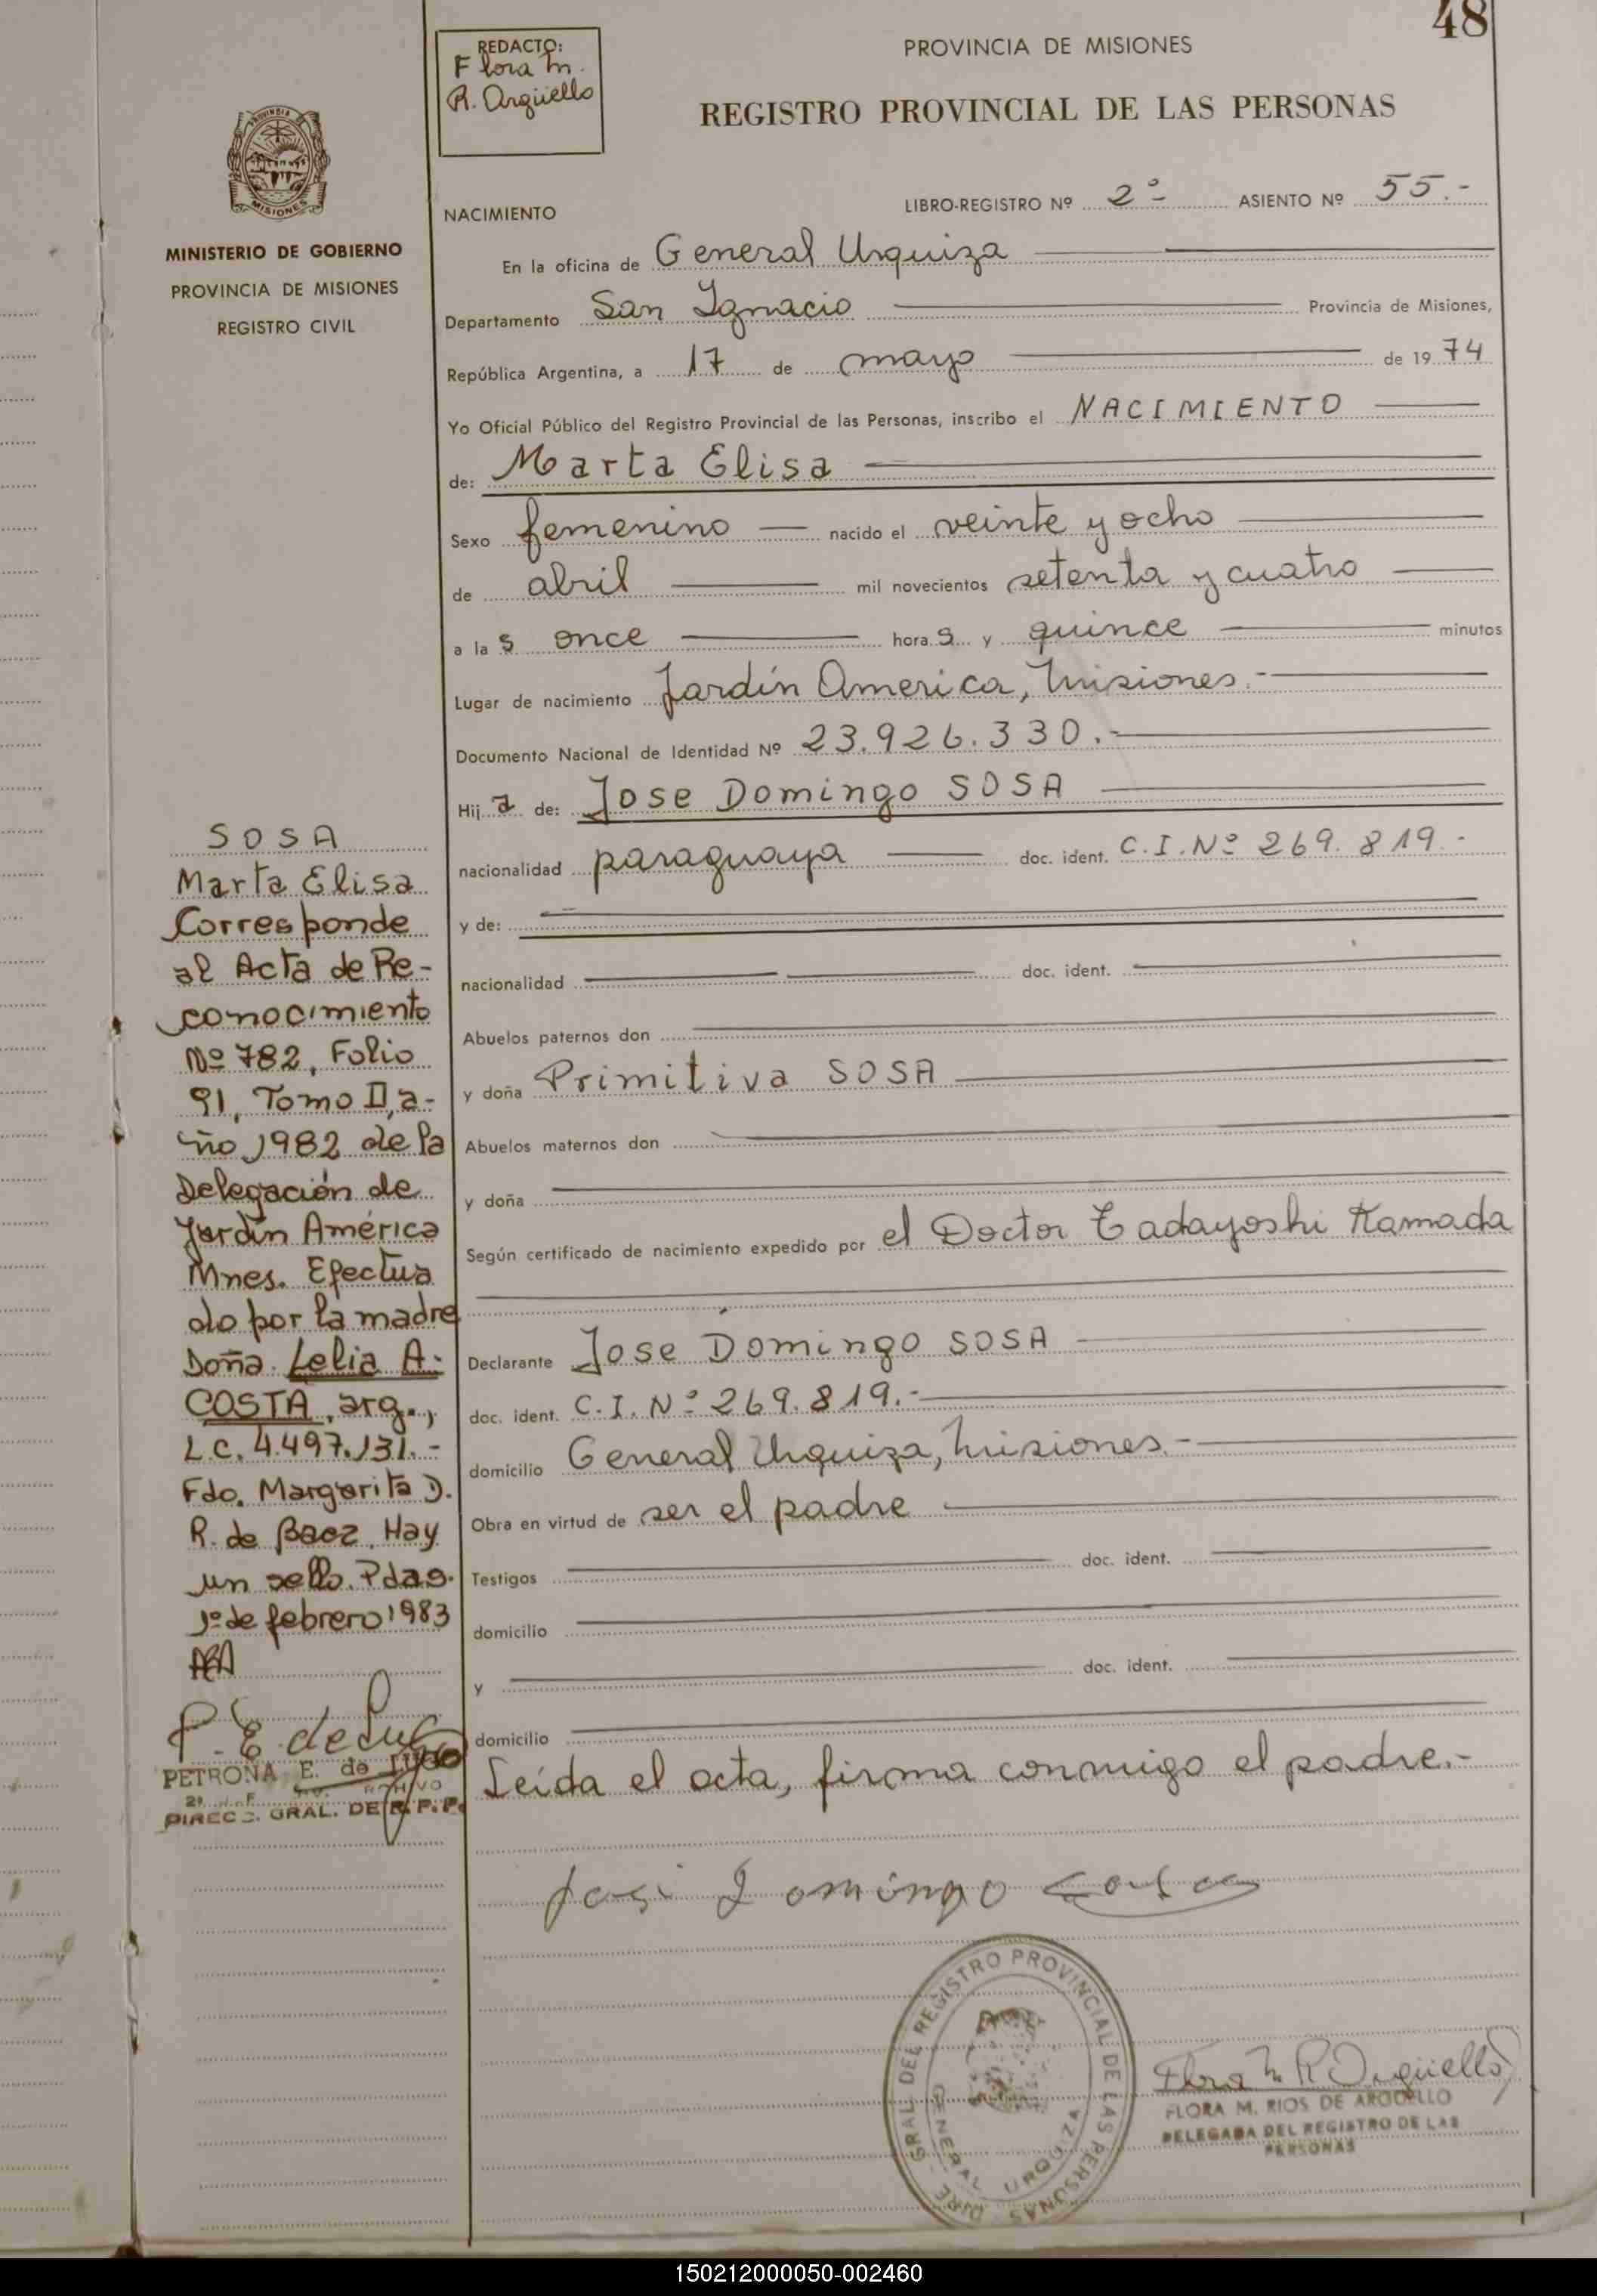 48
REDACTO:
Flora M.
R. Argüello
PROVINCIA DE MISIONES
REGISTRO PROVINCIAL DE LAS PERSONAS
PROVINCIA DE
MISIONES
MINISTERIO DE GOBIERNO
PROVINCIA DE MISIONES
REGISTRO CIVIL
NACIMIENTO
LIBRO-REGISTRO Nº 2º- ASIENTO Nº 55.-
En la oficina de General Urquiza
Departamento San Ignacio Provincia de Misiones,
República Argentina, a 17 de mayo de 1974
Yo Oficial Público del Registro Provincial de las Personas, inscribo el NACIMIENTO
de: Marta Elisa
Sexo femenino nacido el veinte y ocho
de abril mil novecientos setenta y cuatro
a las once horas y quince minutos
Lugar de nacimiento Jardín America, Misiones.-
Documento Nacional de Identidad Nº 23.926.330.-
Hija de: Jose Domingo SOSA
nacionalidad paraguaya doc. ident. C.I.Nº 269.819.-
y de:
nacionalidad doc. ident.
Abuelos paternos don
y doña Primitiva SOSA
Abuelos maternos don
y doña
Según certificado de nacimiento expedido por el Doctor Tadayoshi Kamada
Declarante Jose Domingo SOSA
doc. ident. C.I.Nº 269.819.-
domicilio General Urquiza, Misiones.-
Obra en virtud de ser el padre
Testigos doc. ident.
domicilio
y doc. ident.
domicilio
Leída el acta, firma conmigo el padre.-
SOSA
Marta Elisa
Corresponde
al Acta de Re-
conocimiento
Nº 782, Folio
91, Tomo II, a-
ño 1982 de la
Delegación de
Jardín América
Mnes. Efectua
do por la madre
Doña Lelia A-
COSTA, arg.,
L.C. 4.497.131.-
Fdo. Margarita D.
R. de Baez. Hay
un sello. Pdas.
1º de febrero 1983
P. E. de Lugo
PETRONA E. de LUGO
DIREC. GRAL. DE R. P. P.
Jose Domingo Sosa
DIRE. GRAL. DEL REGISTRO PROVINCIAL DE LAS PERSONAS
GENERAL URQUIZA
Flora M R Argüello
FLORA M. RIOS DE ARGUELLO
DELEGADA DEL REGISTRO DE LAS
PERSONAS
150212000050-002460